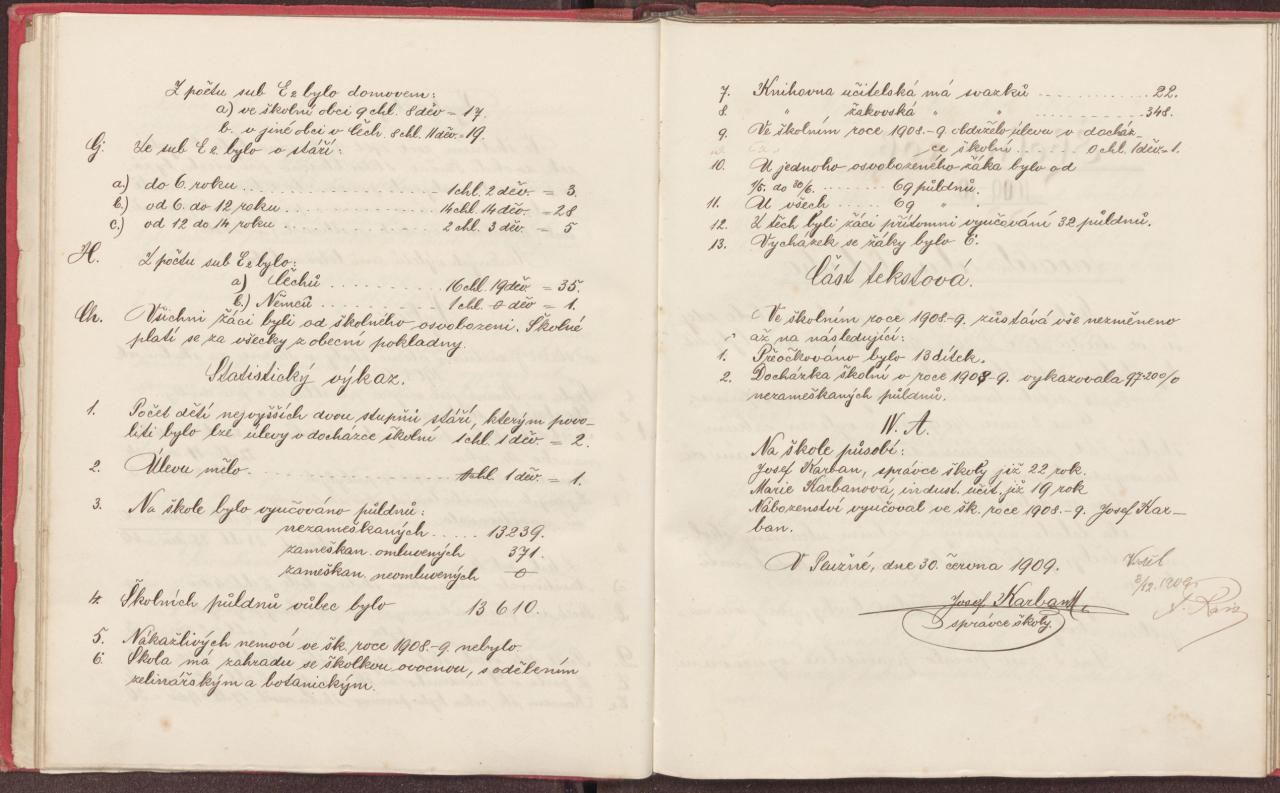 Z počtu sub E2 bylo domovem:
a) ve školní obci 9 chl. 8 děv = 17.
b. v jiné obci v Čech. 8 chl. 11 děv. = 19.
G. Ze sub E2 bylo o stáří:
a.) do 6. roku ........ 1 chl. 2 děv. = 3.
b.) od 6. do 12 roku ........ 14 chl. 14 děv. = 28
c.) od 12 do 14 roku ........ 2 chl. 3 děv. = 5
H. Z počtu sub E2 bylo:
a) Čechů ........ 16 chl. 19 děv = 35.
b.) Němců ........ 1 chl. 0 děv = 1.
Ch. Všichni žáci byli od školného osvobozeni. Školné
platí se za všecky z obecní pokladny.
Statistický výkaz.
1. Počet dětí nejvyšších dvou stupňů stáří, kterým povo-
liti bylo lze úlevy v docházce školní 1 chl. 1 děv. = 2.
2. Úlevu mělo ........ chl. 1 děv. = 1.
3. Na škole bylo vyučováno půldnů:
nezameškaných ..... 13239.
zameškan. omluvených 371.
zameškan. neomluvených 0
4. Školních půldnů vůbec bylo 13610.
5. Nákažlivých nemocí ve šk. roce 1908.-9. nebylo.
6. Škola má zahradu se školkou ovocnou, s odělením
zelinářským a botanickým.
7. Knihovna učitelská má svazků ........ 22.
8. " žákovská " " ...... 348.
9. Ve školním roce 1908-9. obdrželo úlevu v docház-
ce školní ...... 0 chl. 1 děv = 1.
10. U jednoho osvobozeného žáka bylo od
1/5. do 30/6. ........ 69 půldnů.
11. U všech ...... 69 " .
12. Z těch byli žáci přítomni vyučování 32 půldnů.
13. Vycházek se žáky bylo 6.
Část tekstová.
Ve školním roce 1908-9. zůstává vše nezměněno
až na následující:
1. Přeočkováno bylo 13 dítek.
2. Docházka školní v roce 1908-9. vykazovala 97·200/0
nezameškaných půldnů.
IV. A.
Na škole působí:
Josef Karban, správce školy již 22 rok.
Marie Karbanová, indust. učit. již 19 rok
Náboženství vyučoval ve šk. roce 1908.-9. Josef Kar-
ban.
V Plužné, dne 30. června 1909.
Viděl
2/12. 1909
Josef Karban
správce školy.